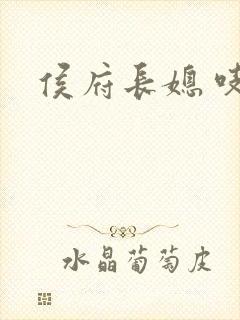 侯府長媳
水晶葡萄皮